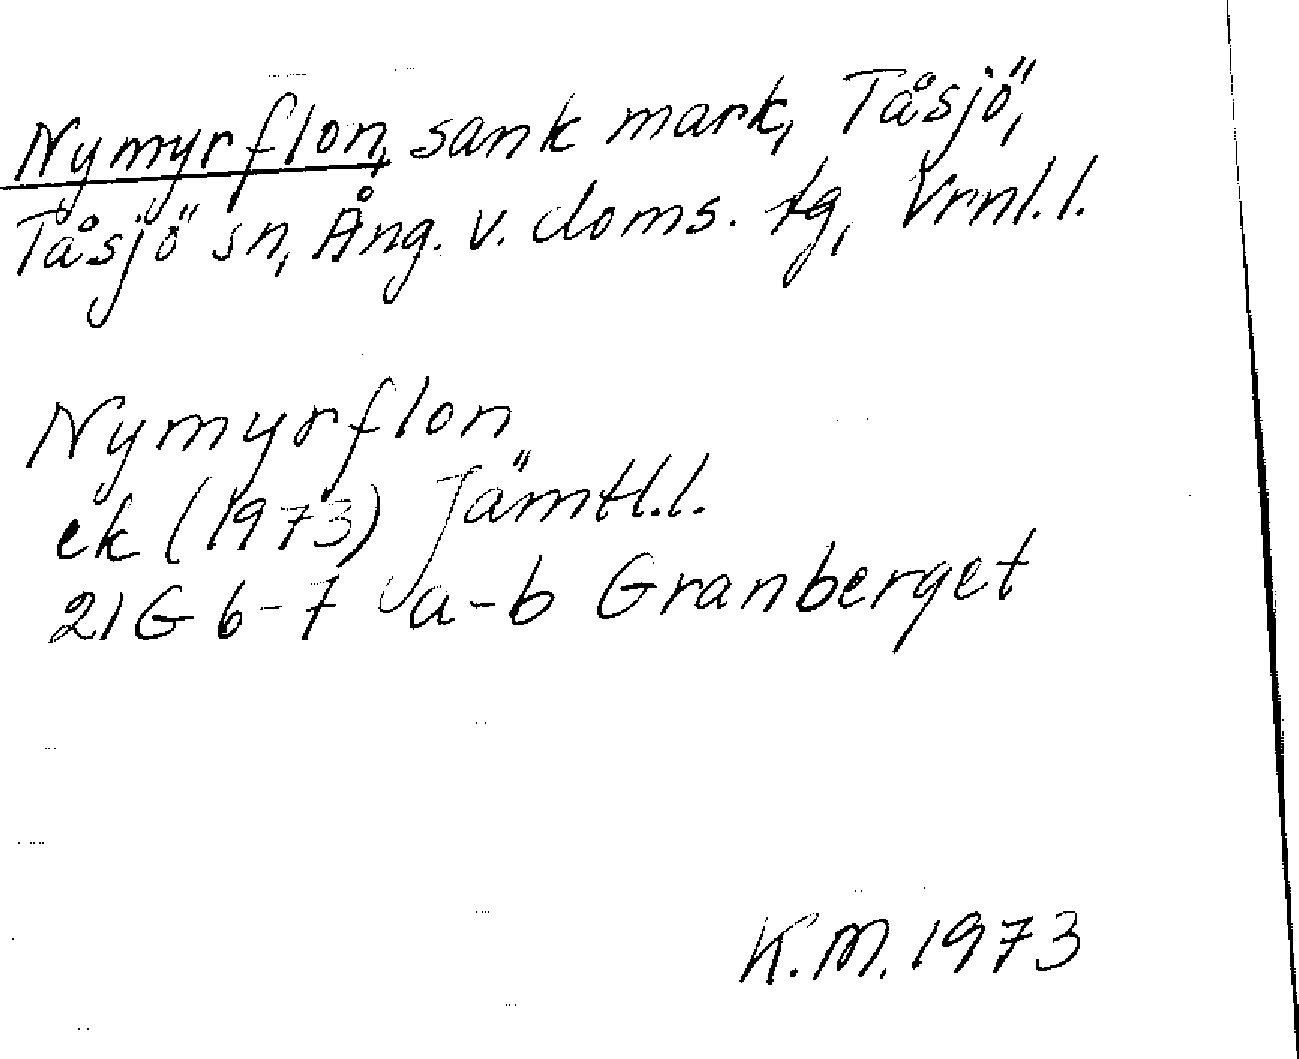 Nymyrflon, sank mark, Tåsjö,
Tåsjö sn, Ång. v. doms. tg, Vrnl.l.
Nymyrflon
ek (1973) Jämtl.l.
21G 6-7 a-b Granberget
K.M. 1973